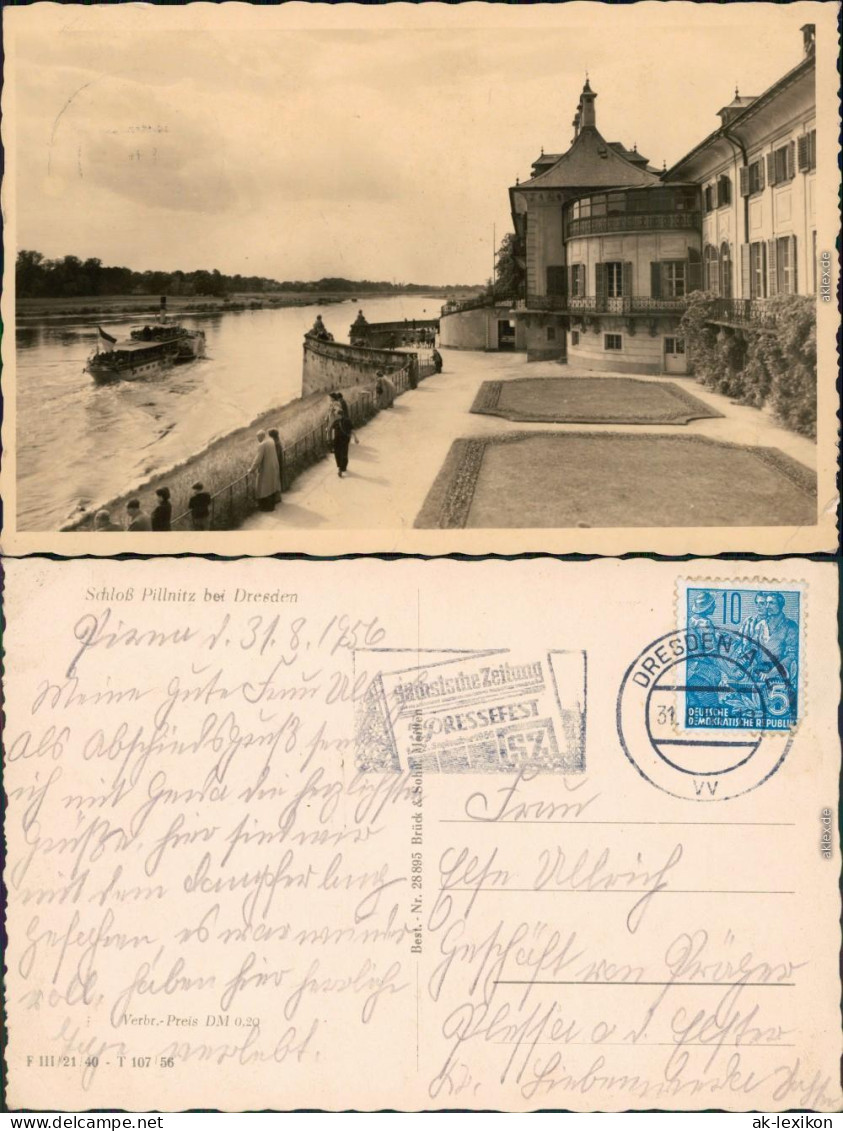 aklex.de
Schloß Pillnitz bei Dresden
Pirna d. 31.8.1956
Meine gute Frau Ull
Als Abschiedsgruß sen
ich mit Gerda die herzlichsten
Grüße hier sind wir
mit dem Dampfer lang
gefahren, es war wunder
voll, haben hier herrliche
Tage verlebt.
Verbr.-Preis DM 0,20
F III/21/40 - T 107/56
Sächsische Zeitung
PRESSEFEST
SZ
Best.-Nr. 28895 Brück & Sohn, Meißen
DRESDEN A
31.
vv
10
5
DEUTSCHE
DEMOKRATISCHE REPUBLIK
Frau
Else Ullrich
Geschäft von Präger
Plessa a. d. Elster
Kr. Liebenwerda
aklex.de
ak-lexikon